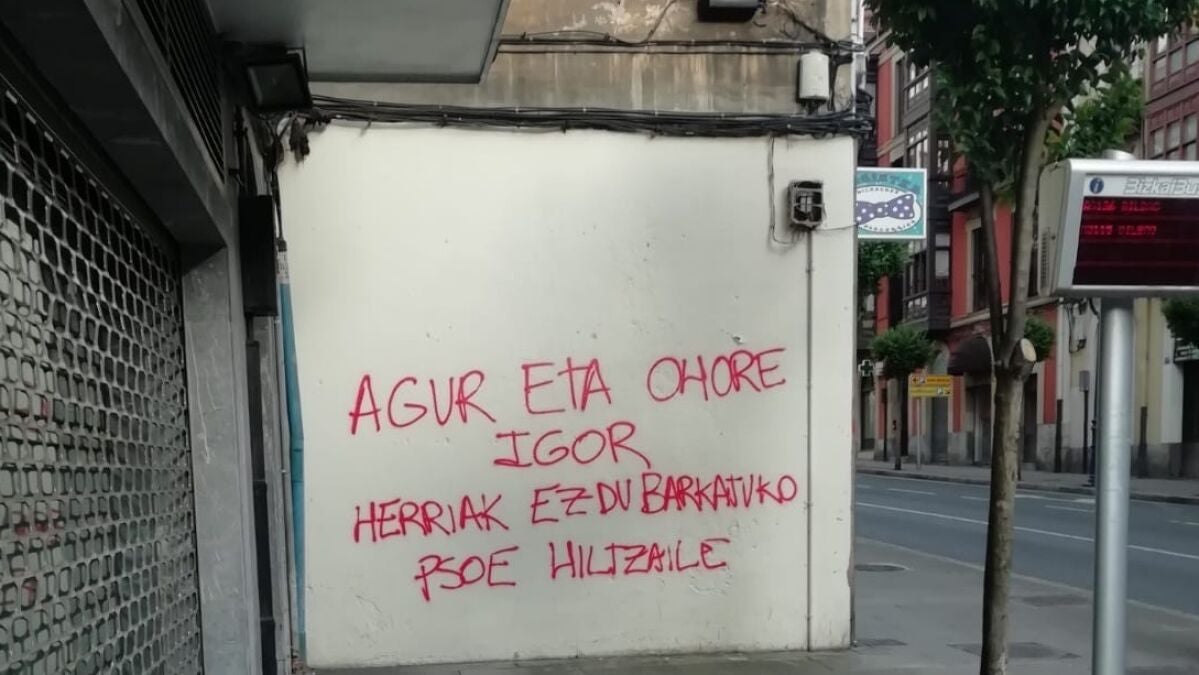 AGUR ETA OHORE
IGOR
HERRIAK EZ DU BARKATUKO
PSOE HILTZAILE
i BizkaiBus
BILBAO
BILBAO